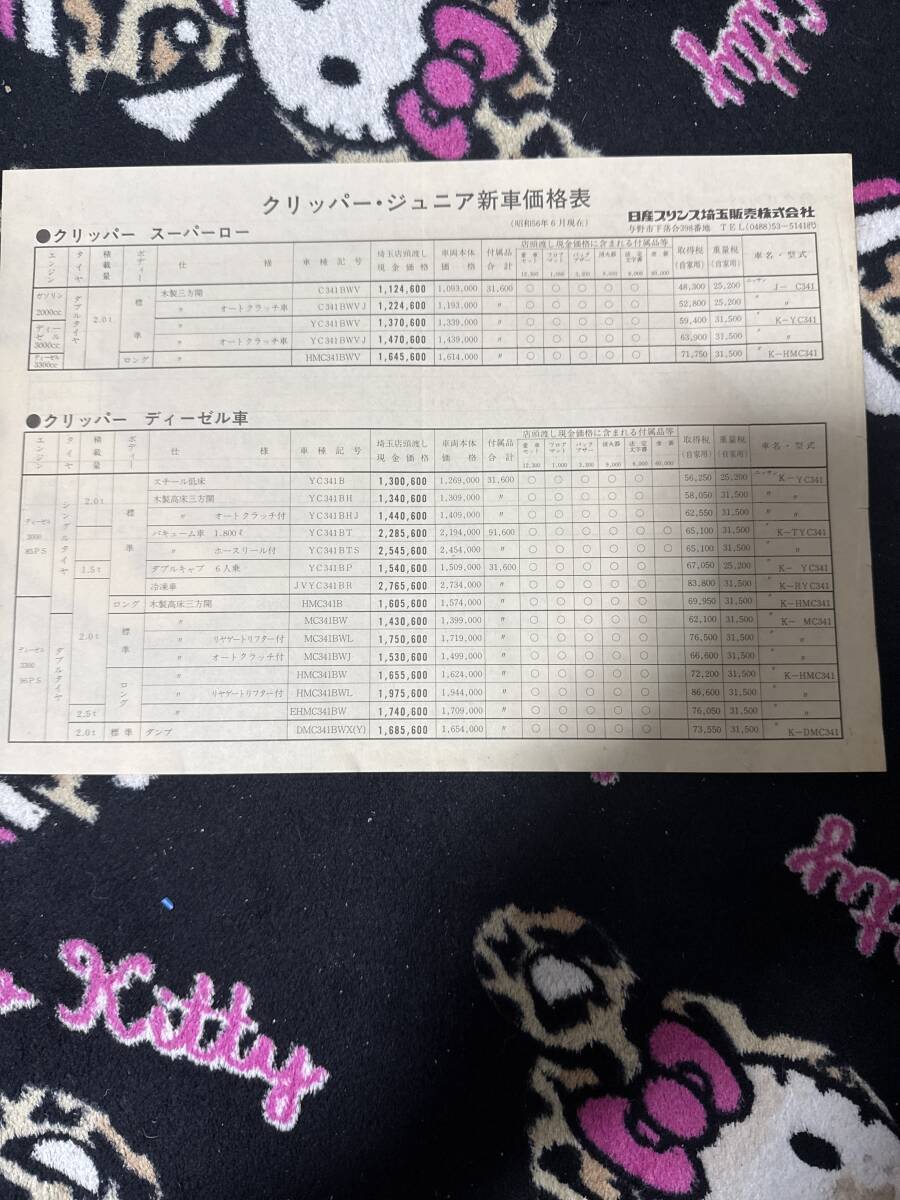 Kitty
クリッパー・ジュニア新車価格表
(昭和56年6月現在)
日産プリンス埼玉販売株式会社
与野市下落合398番地 TEL(0488)53-5141代
●クリッパー スーパーロー
エンジン タイヤ 積載量 ボディー 仕様 車種記号 埼玉店頭渡し現金価格 車両本体価格 付属品合計 店頭渡し現金価格に含まれる付属品等 取得税(自家用) 重量税(自家用) 車名・型式
ガソリン2000cc ダブルタイヤ 2.0t 標準 木製三方開 C341BWV 1,124,600 1,093,000 31,600 ○ ○ ○ ○ ○ 48,300 25,200 ニッサン J-C341
〃 オートクラッチ車 C341BWVJ 1,224,600 1,193,000 〃 ○ ○ ○ ○ ○ 52,800 25,200 〃 〃
ディーゼル3000cc 〃 YC341BWV 1,370,600 1,339,000 〃 ○ ○ ○ ○ ○ 59,400 31,500 〃 K-YC341
〃 オートクラッチ車 YC341BWVJ 1,470,600 1,439,000 〃 ○ ○ ○ ○ ○ 63,900 31,500 〃 〃
ディーゼル3300cc ロング 〃 HMC341BWV 1,645,600 1,614,000 〃 ○ ○ ○ ○ ○ 71,750 31,500 〃 K-HMC341
●クリッパー ディーゼル車
エンジン タイヤ 積載量 ボディー 仕様 車種記号 埼玉店頭渡し現金価格 車両本体価格 付属品合計 店頭渡し現金価格に含まれる付属品等 取得税(自家用) 重量税(自家用) 車名・型式
シングルタイヤ 2.0t 標準 スチール低床 YC341B 1,300,600 1,269,000 31,600 ○ ○ ○ ○ ○ 56,250 25,200 ニッサン K-YC341
木製高床三方開 YC341BH 1,340,600 1,309,000 〃 ○ ○ ○ ○ ○ 58,050 31,500 〃 〃
〃 オートクラッチ付 YC341BHJ 1,440,600 1,409,000 〃 ○ ○ ○ ○ ○ 62,550 31,500 〃 〃
バキューム車 1.800ℓ YC341BT 2,285,600 2,194,000 91,600 ○ ○ ○ ○ ○ ○ 65,100 31,500 〃 K-TYC341
〃 ホースリール付 YC341BTS 2,545,600 2,454,000 〃 ○ ○ ○ ○ ○ ○ 65,100 31,500 〃 〃
1.5t ダブルキャブ 6人乗 YC341BP 1,540,600 1,509,000 31,600 ○ ○ ○ ○ ○ 67,050 25,200 〃 K-YC341
冷凍車 JVYC341BR 2,765,600 2,734,000 〃 ○ ○ ○ ○ ○ 83,800 31,500 〃 K-HYC341
ロング 木製高床三方開 HMC341B 1,605,600 1,574,000 〃 ○ ○ ○ ○ ○ 69,950 31,500 〃 K-HMC341
ダブルタイヤ 2.0t 標準 〃 MC341BW 1,430,600 1,399,000 〃 ○ ○ ○ ○ ○ 62,100 31,500 〃 K-MC341
〃 リヤゲートリフター付 MC341BWL 1,750,600 1,719,000 〃 ○ ○ ○ ○ ○ 76,500 31,500 〃 〃
〃 オートクラッチ付 MC341BWJ 1,530,600 1,499,000 〃 ○ ○ ○ ○ ○ 66,600 31,500 〃 〃
ロング 〃 HMC341BW 1,655,600 1,624,000 〃 ○ ○ ○ ○ ○ 72,200 31,500 〃 K-HMC341
〃 リヤゲートリフター付 HMC341BWL 1,975,600 1,944,000 〃 ○ ○ ○ ○ ○ 86,600 31,500 〃 〃
2.5t 〃 EHMC341BW 1,740,600 1,709,000 〃 ○ ○ ○ ○ ○ 76,050 31,500 〃 〃
2.0t 標準 ダンプ DMC341BWX(Y) 1,685,600 1,654,000 〃 ○ ○ ○ ○ ○ 73,550 31,500 〃 K-DMC341
Kitty